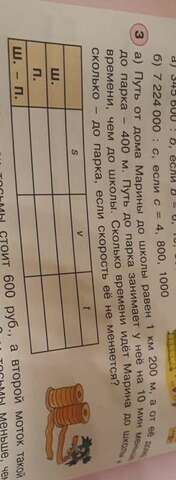 а) 345 600 : b, если b = 6,
б) 7 224 000 : c, если c = 4, 800, 1000
3
а) Путь от дома Марины до школы равен 1 км 200 м, а от её дома
до парка – 400 м. Путь до парка занимает у неё на 10 мин меньше
времени, чем до школы. Сколько времени идёт Марина до школы и
сколько – до парка, если скорость её не меняется?
s v t
Ш.
П.
Ш. – П.
тесьмы стоит 600 руб., а второй моток такой
тесьмы меньше, чем